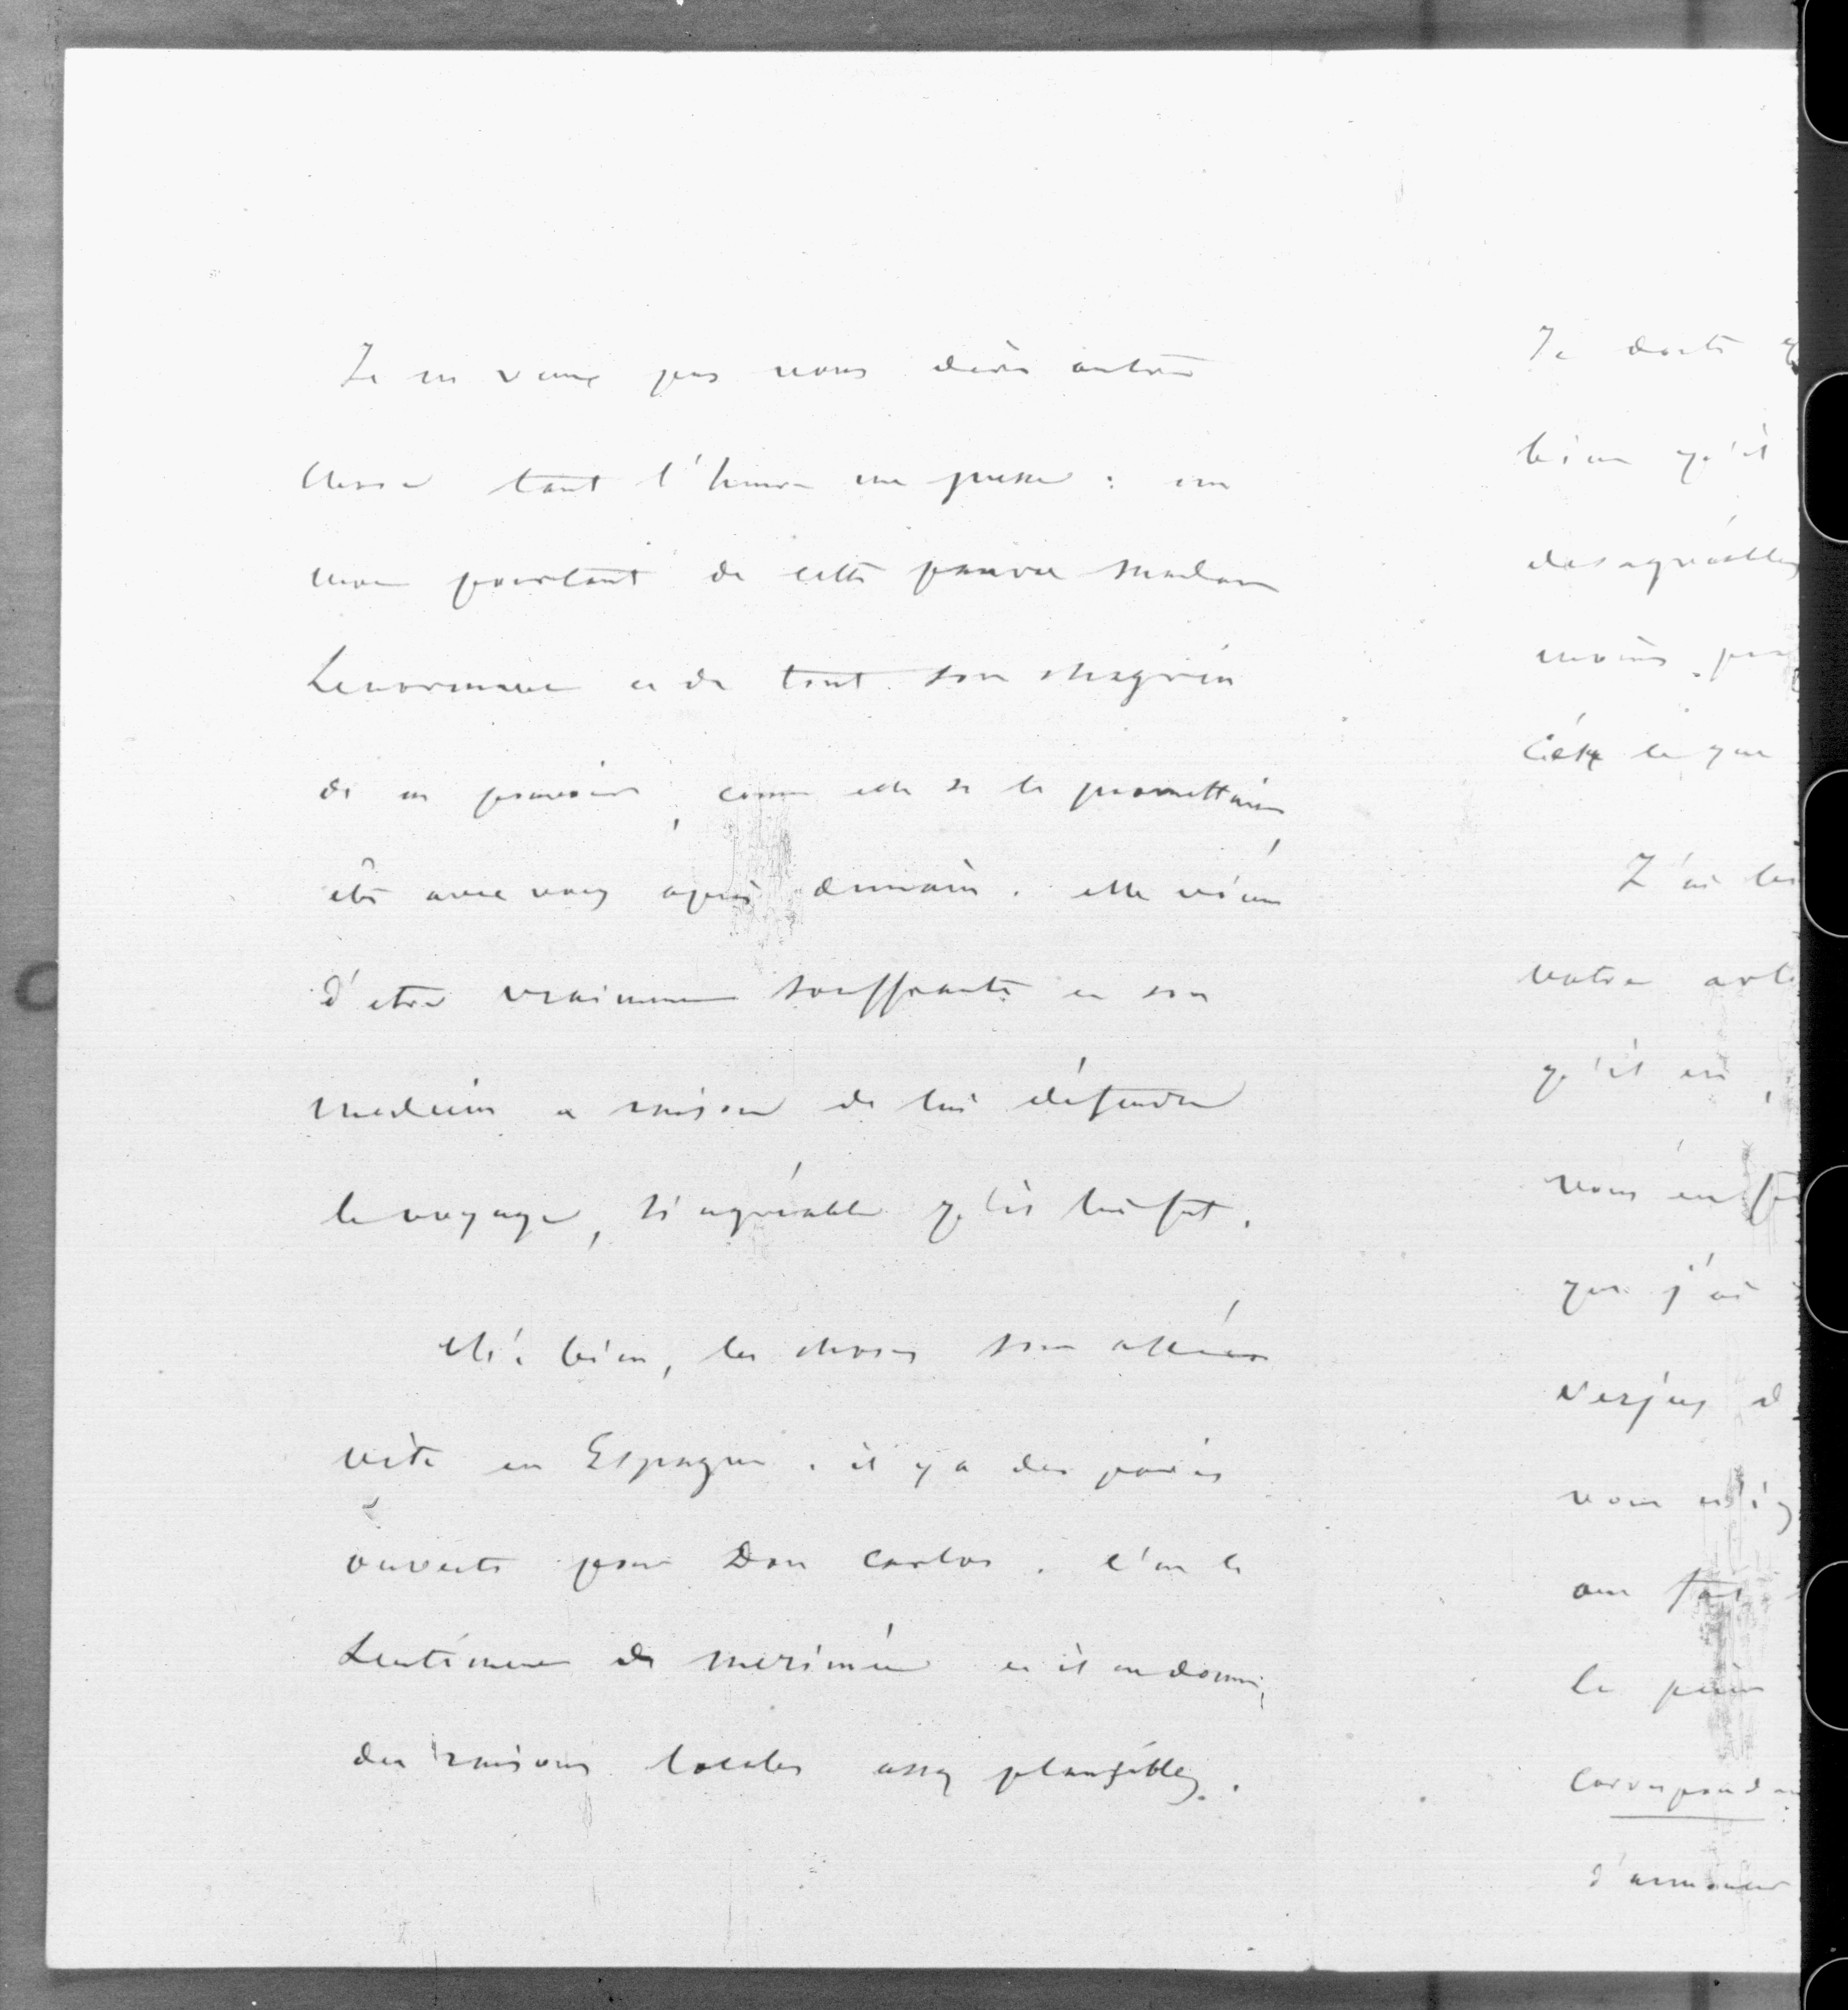 Je ne veux pas vous dire autre
chose tant l'heure me presse : un
mot pourtant de cette pauvre madame
Lenormant et de tout son chagrin
de ne pouvoir, comme elle se le promettait,
être avec vous après demain. elle vient
d'etre vraiment souffrante et son
medecin a raison de lui défendre
le voyage, si agréable qu'il lui fut.
Eh! bien, les choses sont allées
vite en Espagne. il y a des paris
ouverts pour Don Carlos. c'est le
sentiment de merimée et il en donne,
des raisons locales assez plausibles.
Je doute
bien qu'il
desagréables
moins
C'est ce que
J'ai
votre
qu'il est,
vous en
que j'ai
verjus
vous
on
le
correspondan
d'